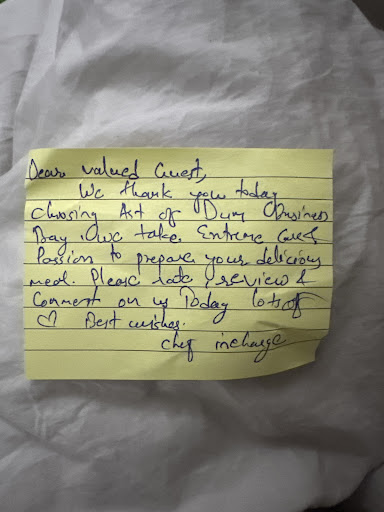 Dear valued Guest,
We thank you today
Choosing Art of Dum Business
Bay. We take Extreme Care &
Passion to prepare your delicious
meal. Please rate, review &
Comment on us Today lots of
♡ Best wishes.
chef incharge